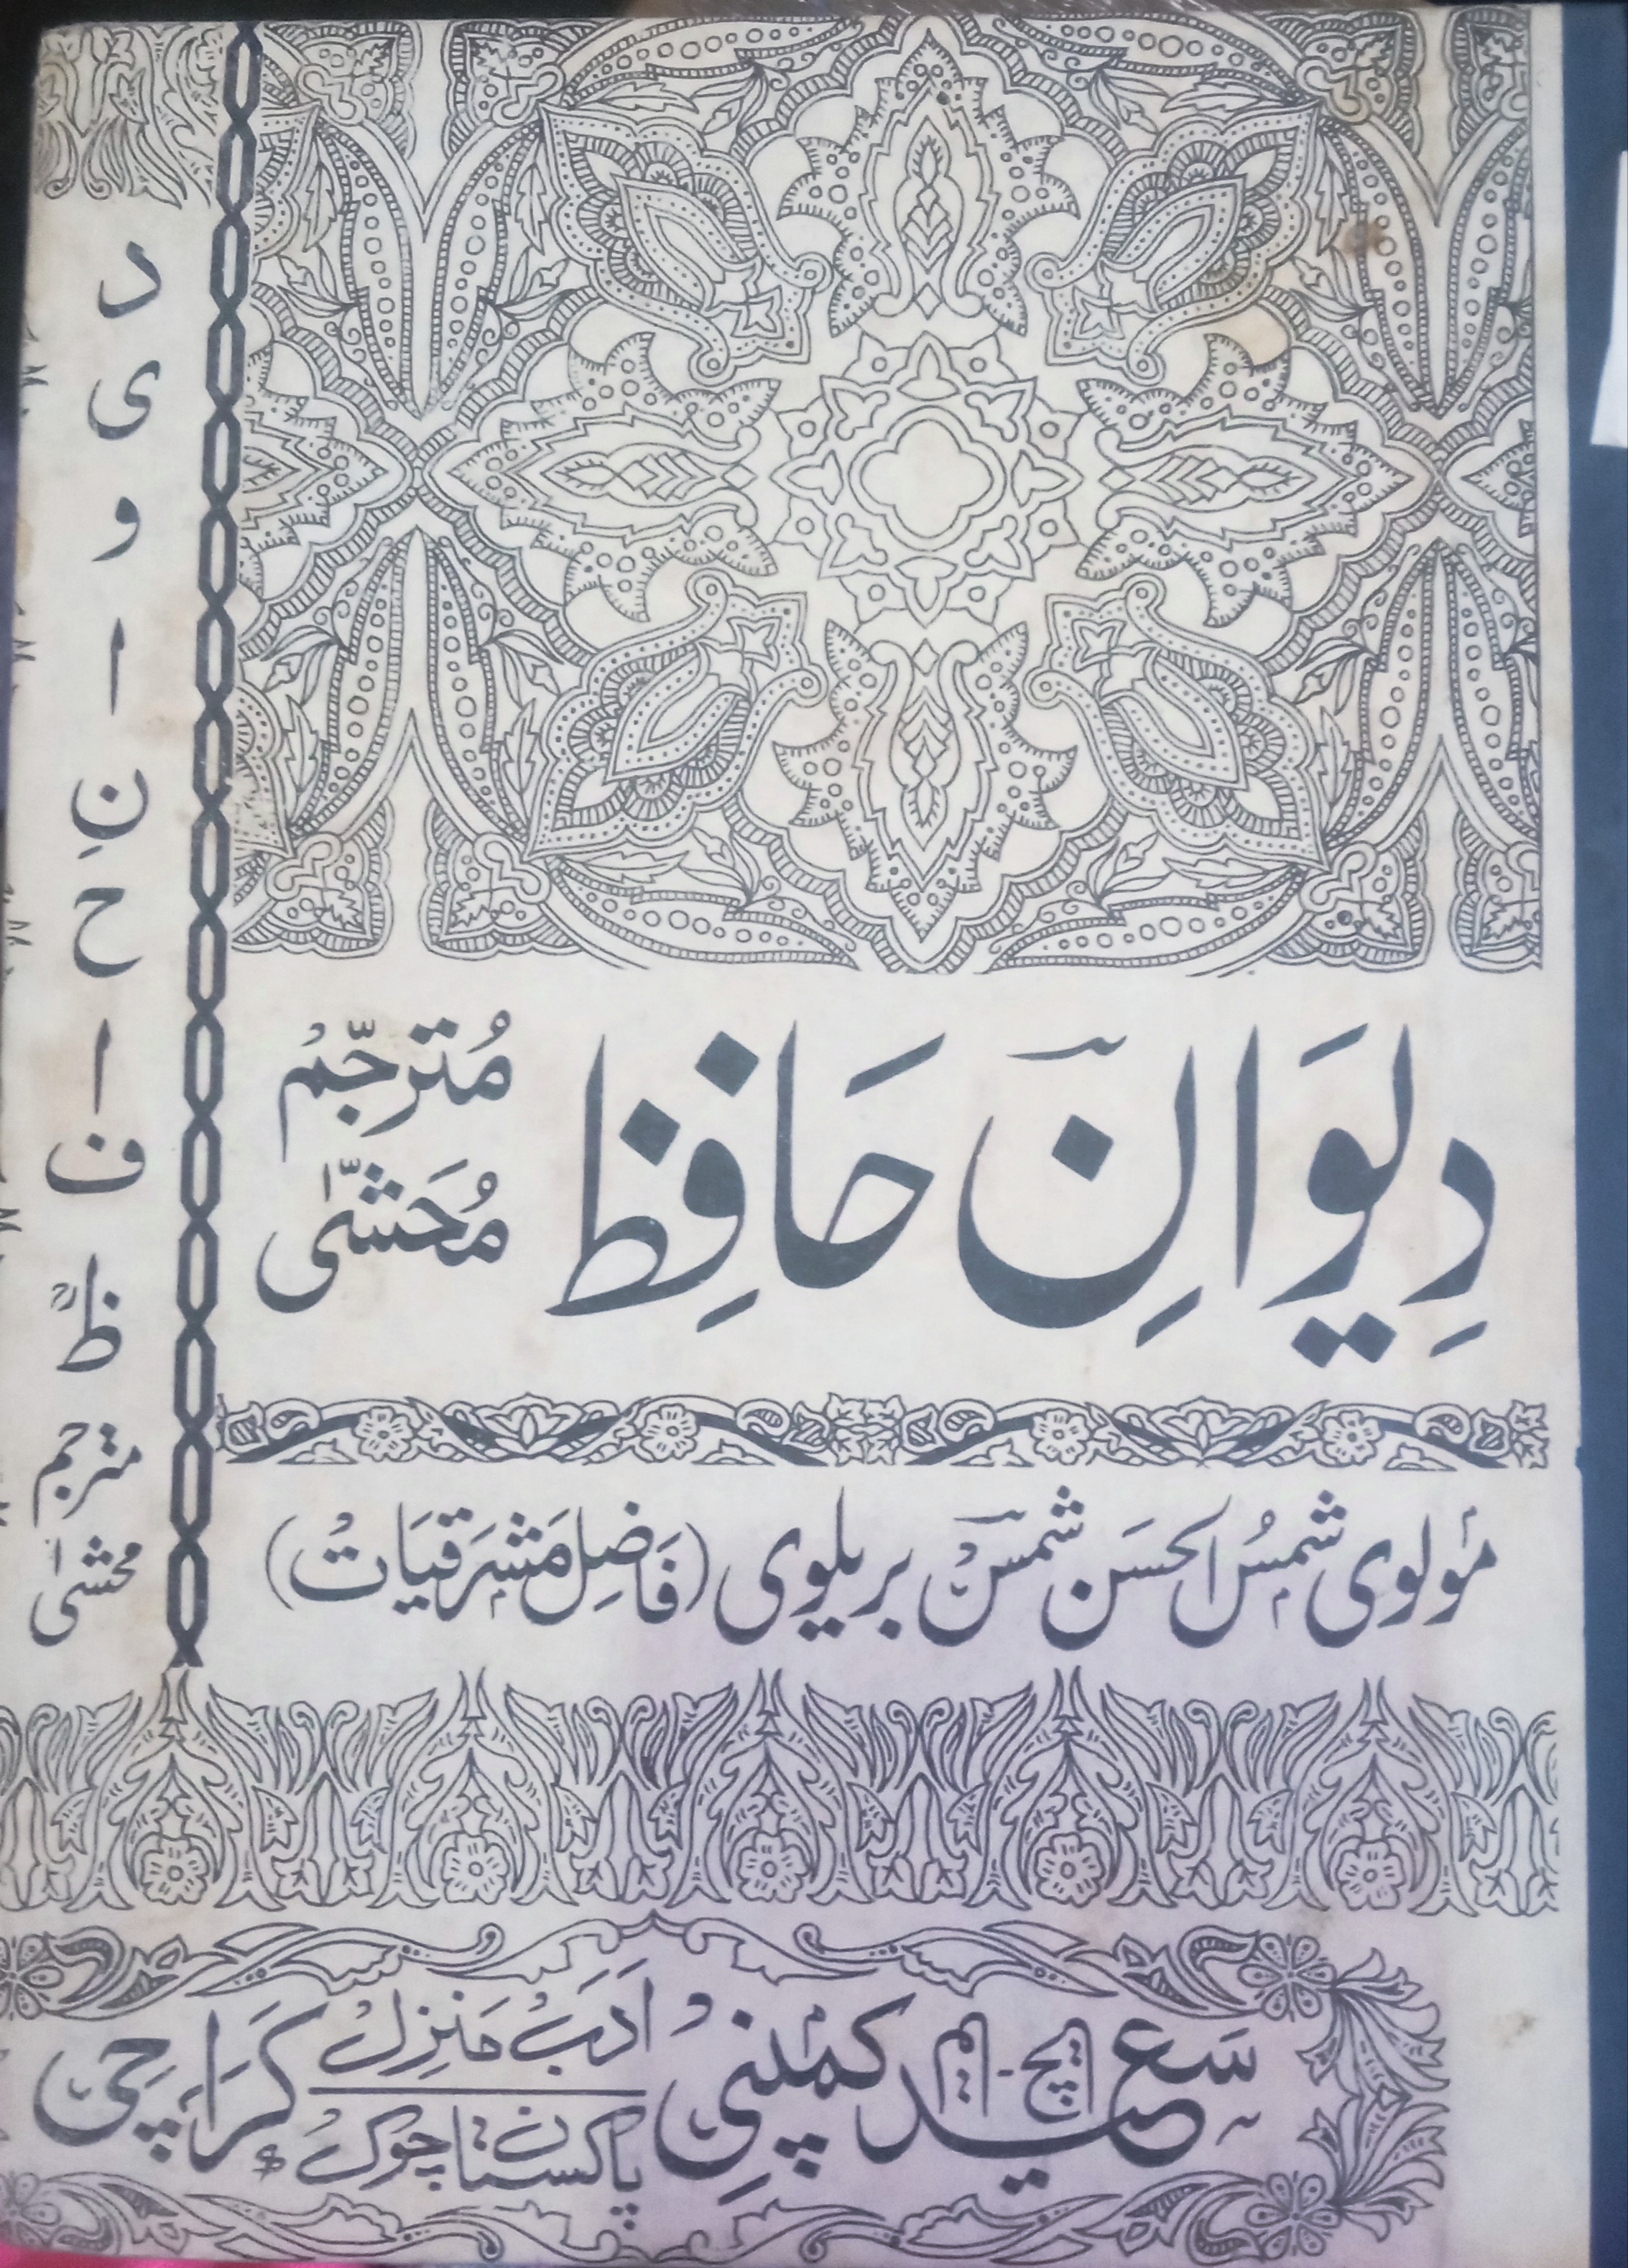 دِیوَانِ حَافِظ
مُترجَّم
مُحَشّٰی
مولوی شمسُ الحسَن شمسؔ بریلوی (فَاضِل مَشرقیَات)
ایچ - ایم
سَعید کمپنی
اَدَب مَنزِل
پاکستان چوک
کرَاچی
د
ی
و
ا
نِ
ح
ا
ف
ظؒ
مترجم
محشیٰ